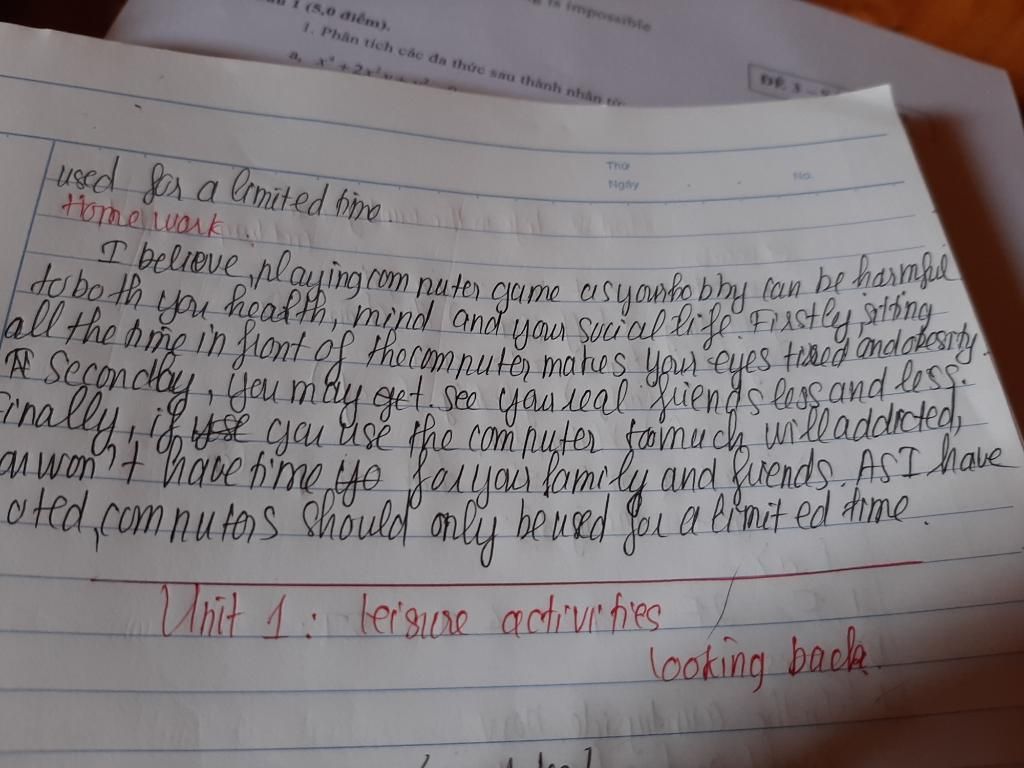 g is impossible
1 (5,0 điểm).
1. Phân tích các đa thức sau thành nhân tử
ĐỀ 3
Thứ
Ngày
No.
used for a limited time
Home work
I believe, playing computer game as your hobby can be harmful
to both you health, mind and your social life. Firstly, sitting
all the time in front of the computer makes your eyes tired and obesity.
Secondly, you may get see you real friends less and less.
Finally, if use you use the computer to much will addicted,
won't have time to for your family and friends. As I have
oted, computers should only be used for a limited time.
Unit 1: leisure activities
looking back.